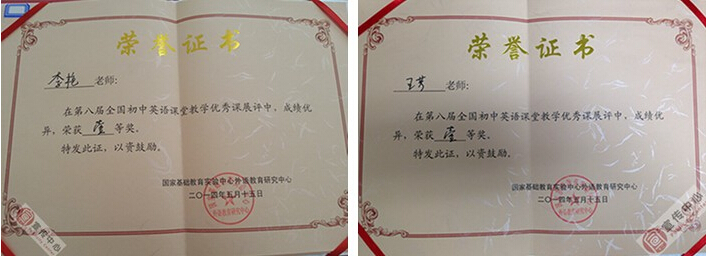 荣誉证书
李艳 老师：
在第八届全国初中英语课堂教学优秀课展评中，成绩优
异，荣获 壹 等奖。
特发此证，以资鼓励。
国家基础教育实验中心外语教育研究中心
二〇一四年五月十五日
外语教育研究中心
宣传中心
荣誉证书
王芳 老师：
在第八届全国初中英语课堂教学优秀课展评中，成绩优
异，荣获 壹 等奖。
特发此证，以资鼓励。
国家基础教育实验中心外语教育研究中心
二〇一四年五月十五日
外语教育研究中心
宣传中心